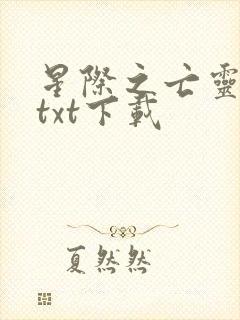 星際之亡靈
txt下載
夏然然